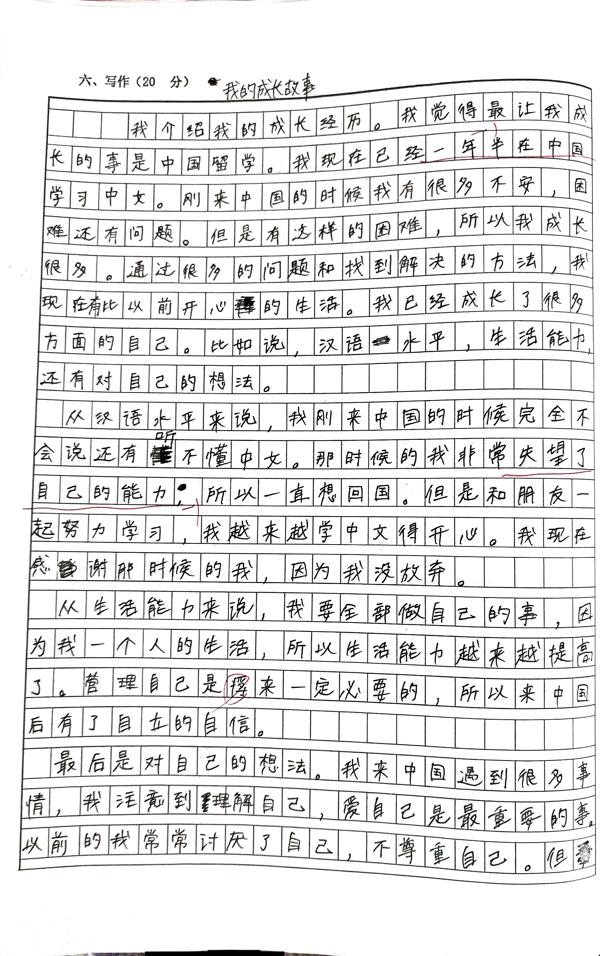 六、写作（20 分） 我的成长故事
我介绍我的成长经历。我觉得最让我成
长的事是中国留学。我现在已经一年半在中国
学习中文。刚来中国的时候我有很多不安，困
难还有问题。但是有这样的困难，所以我成长
很多。通过很多的问题和找到解决的方法，我
现在有比以前开心的生活。我已经成长了很多
方面的自己。比如说，汉语水平，生活能力，
还有对自己的想法。
从汉语水平来说，我刚来中国的时候完全不
会说还有听不懂中文。那时候的我非常失望了
自己的能力，所以一直想回国。但是和朋友一
起努力学习，我越来越学中文得开心。我现在
感谢那时候的我，因为我没放弃。
从生活能力来说，我要全部做自己的事，因
为我一个人的生活，所以生活能力越来越提高
了。管理自己是来一定必要的，所以来中国
后有了自立的自信。
最后是对自己的想法。我来中国遇到很多事
情，我注意到理解自己，爱自己是最重要的事。
以前的我常常讨厌了自己，不尊重自己。但